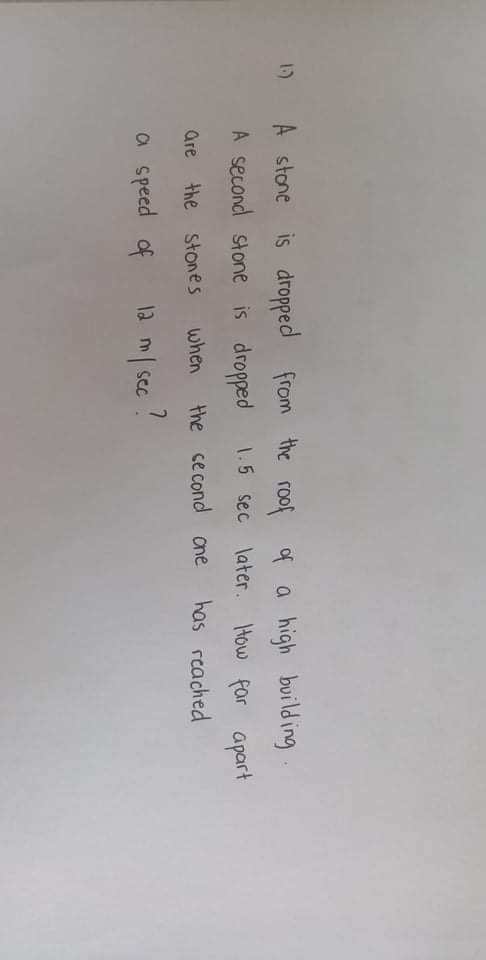 1.) A stone is dropped from the roof of a high building.
A second stone is dropped 1.5 sec later. How far apart
are the stones when the second one has reached
a speed of 12 m/sec?